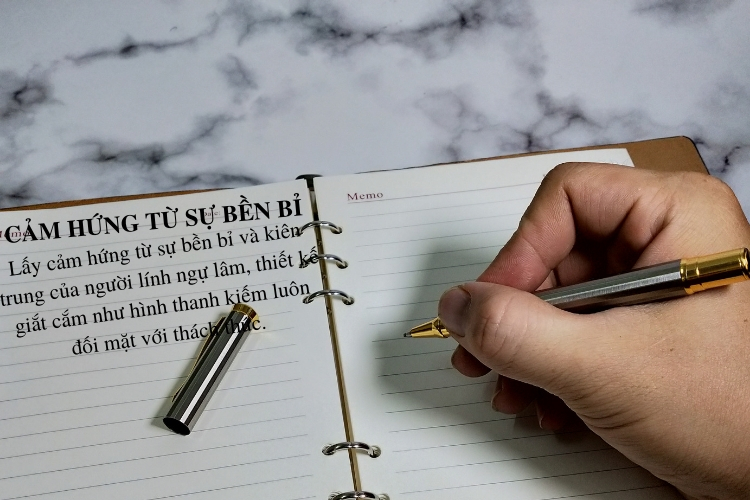 CẢM HỨNG TỪ SỰ BỀN BỈ
Lấy cảm hứng từ sự bền bỉ và kiên
trung của người lính ngự lâm, thiết kế
giắt cắm như hình thanh kiếm luôn
đối mặt với thách thức.
Memo